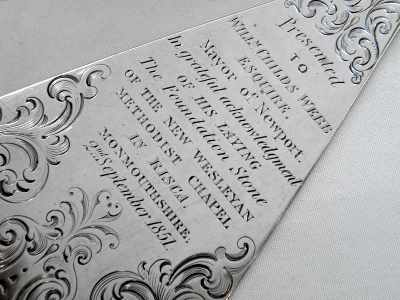 Presented
TO
WILLM CHILDS WEBB
ESQUIRE,
Mayor of Newport.
In grateful acknowledgment
OF HIS LAYING
The Foundation Stone
OF THE NEW WESLEYAN
METHODIST CHAPEL
IN RISCA.
MONMOUTHSHIRE.
2nd September 1851.